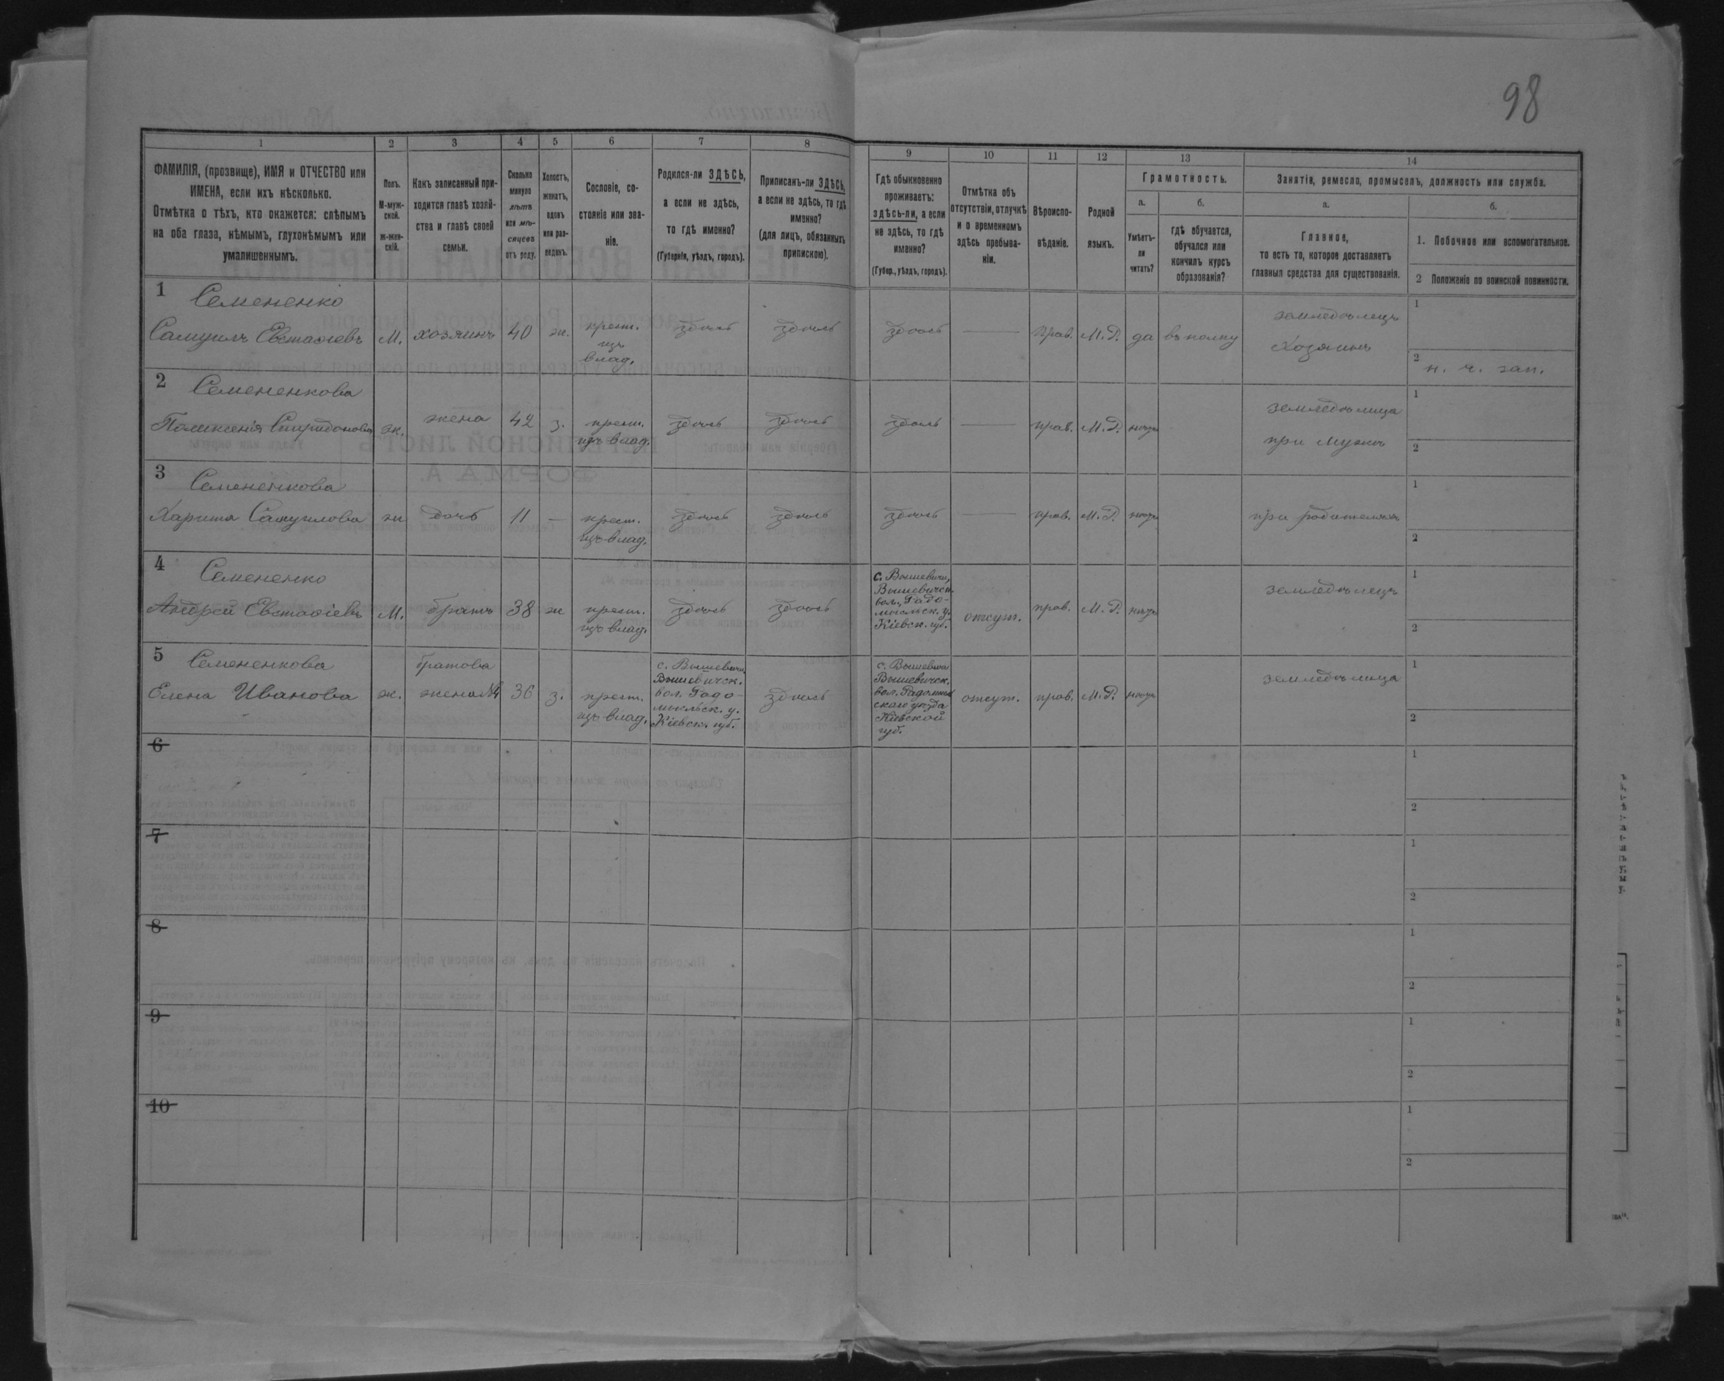 98
1
2
3
4
5
6
7
8
9
10
11
12
13
14
ФАМИЛІЯ, (прозвище), ИМЯ и ОТЧЕСТВО или
ИМЕНА, если ихъ нѣсколько.
Отмѣтка о тѣхъ, кто окажется: слѣпымъ
на оба глаза, нѣмымъ, глухонѣмымъ или
умалишеннымъ.
Полъ.
М-муж-
ской.
ж-жен-
скій.
Какъ записанный при-
ходится главѣ хозяй-
ства и главѣ своей
семьи.
Сколько
минуло
лѣтъ
или мѣ-
сяцевъ
отъ роду.
Холостъ,
женатъ,
вдовъ
или раз-
веденъ.
Сословіе, со-
стояніе или зва-
ніе.
Родился-ли ЗДѢСЬ,
а если не здѣсь,
то гдѣ именно?
(Губернія, уѣздъ, городъ).
Приписанъ-ли ЗДѢСЬ,
а если не здѣсь, то гдѣ
именно?
(для лицъ, обязанныхъ
припискою).
Гдѣ обыкновенно
проживаетъ:
здѣсь-ли, а если
не здѣсь, то гдѣ
именно?
(Губер., уѣздъ, городъ).
Отмѣтка объ
отсутствіи, отлучкѣ
и о временномъ
здѣсь пребыва-
ніи.
Вѣроиспо-
вѣданіе.
Родной
языкъ.
Грамотность.
а.
Умѣетъ-
ли
читать?
б.
гдѣ обучается,
обучался или
кончилъ курсъ
образованія?
Занятіе, ремесло, промыселъ, должность или служба.
а.
Главное,
то есть то, которое доставляетъ
главныя средства для существованія.
б.
1. Побочное или вспомогательное.
2 Положеніе по воинской повинности.
1 Семененко
Самуилъ Евстафіевъ М. хозяинъ 40 ж. крест. здѣсь здѣсь здѣсь — прав. М.Р. да въ полку земледѣлецъ 1
изъ
влад. Хозяинъ 2 н. ч. зап.
2 Семененкова
Поликсенія Спиридонова ж. жена 42 з. крест. здѣсь здѣсь здѣсь — прав. М.Р. нѣтъ земледѣлица 1
изъ влад. при мужѣ 2
3 Семененкова
Харитя Самуилова ж дочь 11 — крест. здѣсь здѣсь здѣсь — прав. М.Р. нѣтъ при родителяхъ 1
изъ влад. 2
4 Семененко
Андрей Евстафіевъ М. братъ 38 ж крест. здѣсь здѣсь
изъ влад.
с. Вышевичи,
Вышевичск.
вол. Радо-
мысльск. у.
Кіевск. губ.
отсут. прав. М.Р. нѣтъ земледѣлецъ 1
2
5 Семененкова
Елена Иванова ж. братова
жена №4 36 з. крест.
изъ влад.
с. Вышевичи,
Вышевичск.
вол. Радо-
мысльск. у.
Кіевск. губ.
здѣсь
с. Вышевичи
Вышевичск.
вол. Радомысль
скаго уѣзда
Кіевской
губ.
отсут. прав. М.Р. нѣтъ земледѣлица 1
2
6 1
2
7 1
2
8 1
2
9 1
2
10 1
2